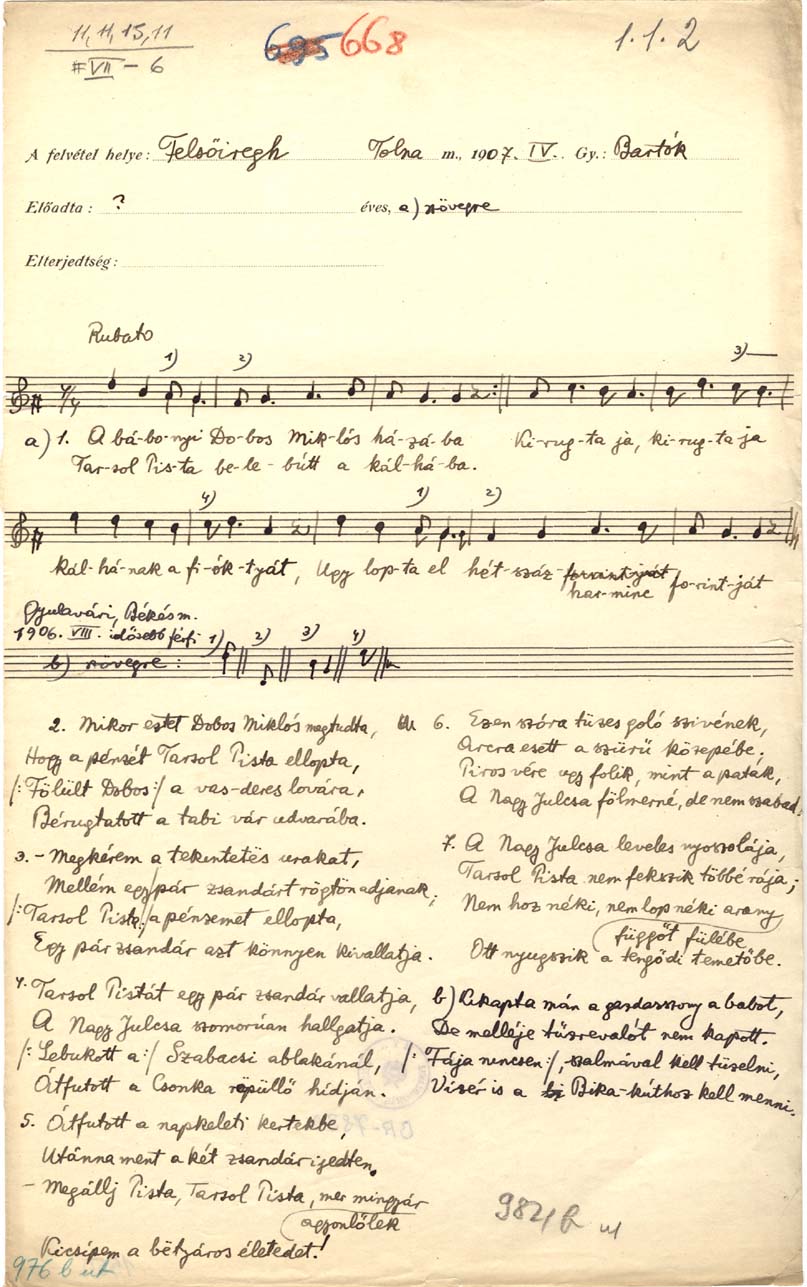 11, 11, 15, 11
VII – 6
695 668
1.1.2
A felvétel helye: Felsőiregh Tolna m., 1907. IV. Gy.: Bartók
Előadta: ? éves, a) szövegre
Elterjedtség:
Rubato
1) 2) 3)
a) 1. A bá-bo-nyi Do-bos Mik-lós há-zá-ba Ki-rug-ta ja, ki-rug-ta ja
Tar-sol Pis-ta be-le-bútt a kál-há-ba.
4) 1) 2)
kál-há-nak a fi-ók-tyát, Ugy lop-ta el hét-száz forintját
har-minc fo-rint-ját
Gyulavári, Békés m.
1906. VIII. idősebb férfi 1) 2) 3) 4)
b) szövegre:
2. Mikor eztet Dobos Miklós megtudta,
Hogy a pénzét Tarsol Pista ellopta,
/: Fölült Dobos :/ a vas-deres lovára,
Bérugtatott a tabi vár udvarába.
3. – Megkérem a tekintetës urakat,
Mellém egy pár zsandárt rögtön adjanak;
/: Tarsol Pista :/ a pénzemet ellopta,
Egy pár zsandár azt könnyen kivallatja.
4. Tarsol Pistát egy pár zsandár vallatja,
A Nagy Julcsa szomorúan hallgatja.
/: Lebukott a :/ Szabacsi ablakánál,
Átfutott a Csonka röpüllő hídján.
5. Átfutott a napkeleti kertekbe,
Utánna ment a két zsandár ijedten.
– Megállj Pista, Tarsol Pista, mer mingyár
agyonlőlek
Kicsípem a bëtyáros életedet!
6. Ezen szóra tüzes goló szivének,
Arcra esett a szürü közepébe;
Piros vére ugy folik, mint a patak,
A Nagy Julcsa fölmerné, de nem szabad.
7. A Nagy Julcsa leveles nyoszolája,
Tarsol Pista nem fekszik többé rája;
Nem hoz néki, nem lop néki arany
függőt fülébe
Ott nyugszik a tengődi temetőbe.
b) Kikapta mán a gazdasszony a babot,
De melléje tüzrevalót nem kapott.
/: Fája nincsen :/, szalmával kell tüzelni,
Vízér is a Bika-kúthoz kell menni.
982/b
976 b